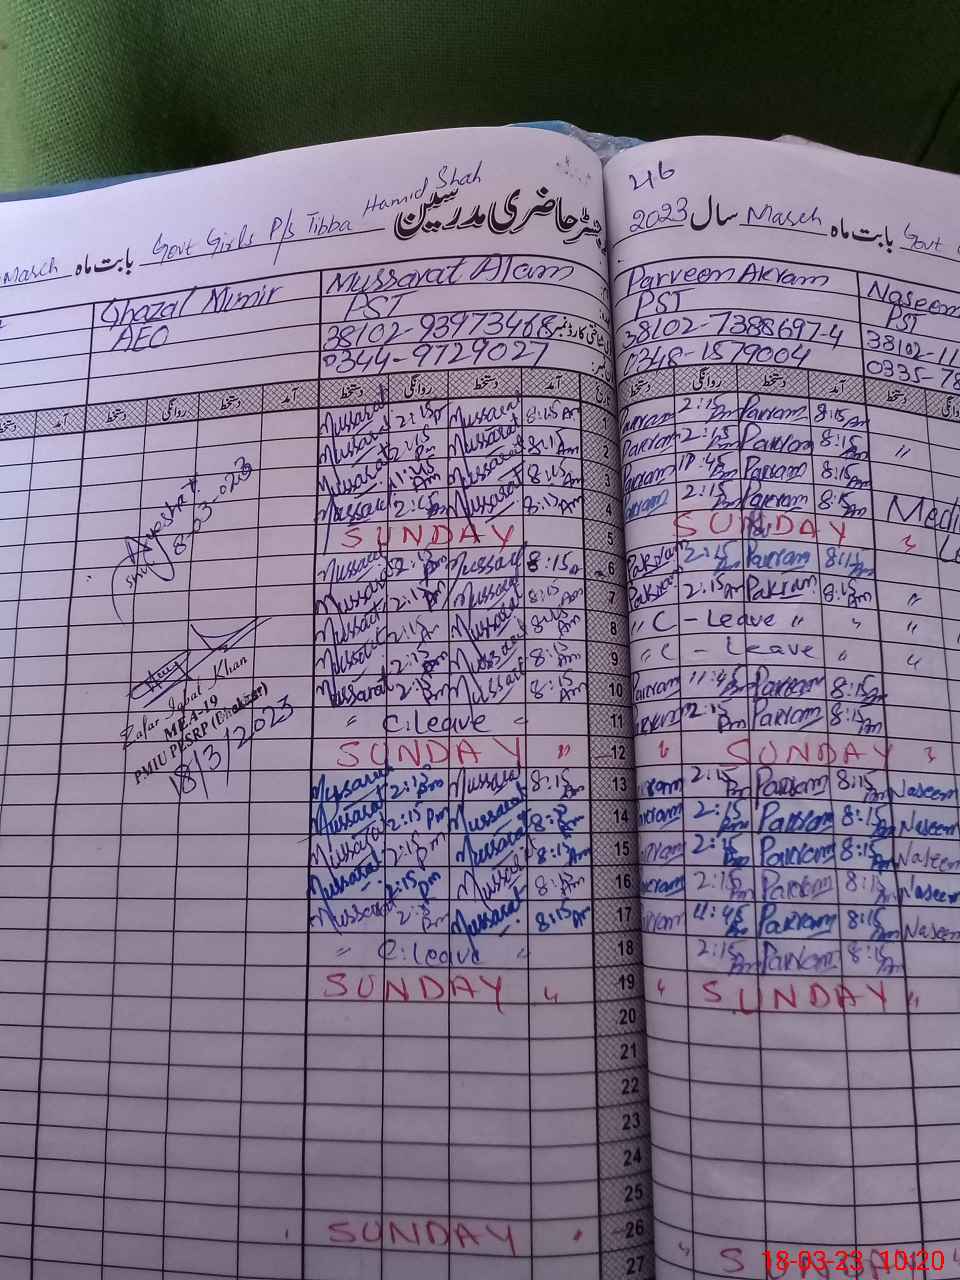 46
رجسٹر حاضری مدرسین
Hamid Shah
March بابت ماہ Govt Girls P/s Tibba
2023 سال March بابت ماہ Govt
Ghazal Munir
AEO
Mussarat Alam
PST
38102-9397346-8
0344-9729027
Parveen Akram
PST
38102-7388697-4
0348-1579004
Naseem
PST
38102-11
0335-78
دستخط آمد دستخط روانگی دستخط آمد
دستخط روانگی دستخط آمد تاریخ
دستخط روانگی دستخط آمد دستخط
Mussarat 2:15 Pm Mussarat 8:15 Am 1 Akram 2:15 Pm Pakram 8:15 Am
Mussarat 2:15 Pm Mussarat 8:15 Am 2 Pakram 2:15 Pm Pakram 8:15 Am "
Mussarat 11:45 Am Mussarat 8:15 Am 3 Pakram 11:45 Pakram 8:15 Am
Mussarat 2:15 Pm Mussarat 8:15 Am 4 Akram 2:15 Pm Pakram 8:15 Am
SUNDAY 5 SUNDAY "
Mussarat 2:15 Pm Mussarat 8:15 Am 6 Pakram 2:15 Pm Pakram 8:15 Am
Mussarat 2:15 Pm Mussarat 8:15 Am 7 Pakram 2:15 Pakram 8:15 Am "
Mussarat 2:15 Mussarat 8:15 Am 8 " C - Leave " " "
Mussarat 2:15 Mussarat 8:15 Am 9 " C - Leave " "
Mussarat 2:15 Pm Mussarat 8:15 Am 10 Pakram 11:45 Pakram 8:15 Am
" C.Leave " 11 2:15 Pm Pakram 8:15 Am
SUNDAY " 12 " SUNDAY "
Mussarat 2:15 Pm Mussarat 8:15 Am 13 Akram 2:15 Pm Pakram 8:15 Am Naseem
Mussarat 2:15 Pm Mussarat 8:15 Am 14 Akram 2:15 Pm Pakram 8:15 Am Naseem
Mussarat 2:15 Pm Mussarat 8:15 Am 15 Akram 2:15 Pm Pakram 8:15 Am Naseem
Mussarat 2:15 Pm Mussarat 8:15 Am 16 Akram 2:15 Pm Pakram 8:15 Am Naseem
Mussarat 2:15 Pm Mussarat 8:15 Am 17 Akram 11:45 Pakram 8:15 Am Naseem
" C.Leave " 18 2:15 Pm Pakram 8:15 Am
SUNDAY " 19 " SUNDAY "
20
21
22
23
24
25
SUNDAY " 26
27
8-03-023
Zafar Iqbal Khan
MEA-19
PMIU PESRP (Bhakkar)
18/3/2023
18-03-23 10:20